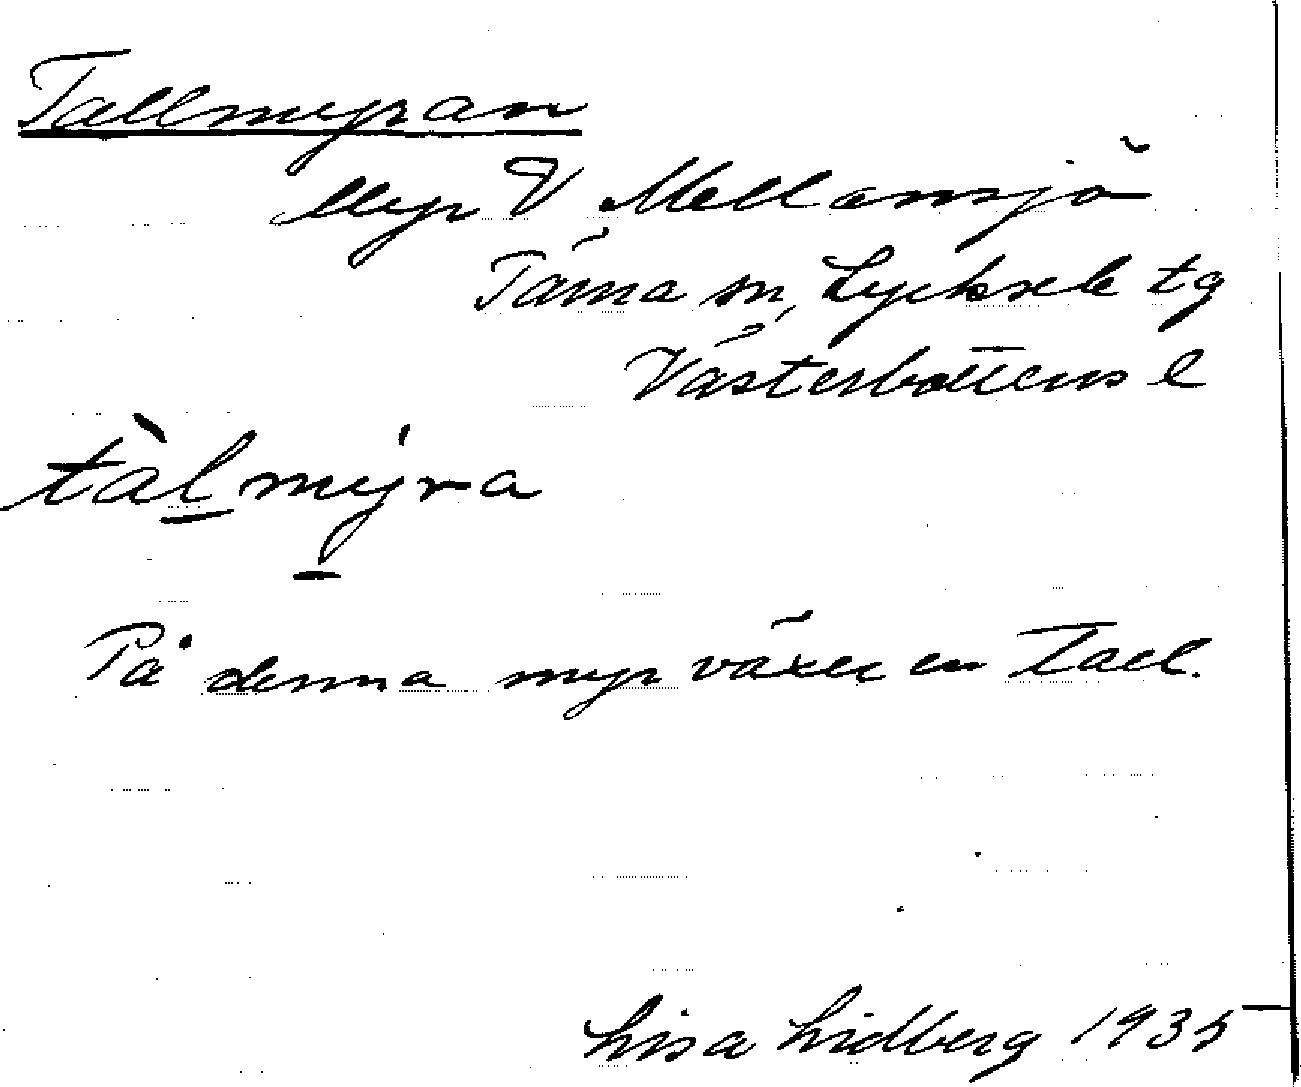 Tallmyran
Myr V Mellansjö
Tärna sn, Lycksele tg
Västerbottens l
tàl mýra
På denna myr växer en Tall.
Lisa Lidberg 1935